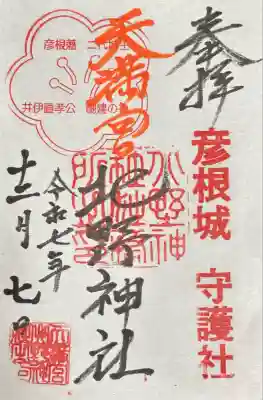 奉拝
彦根城 守護社
天満宮
北野神社
彦根藩 二代藩主
井伊直孝公 創建の社
令和七年
十二月七日